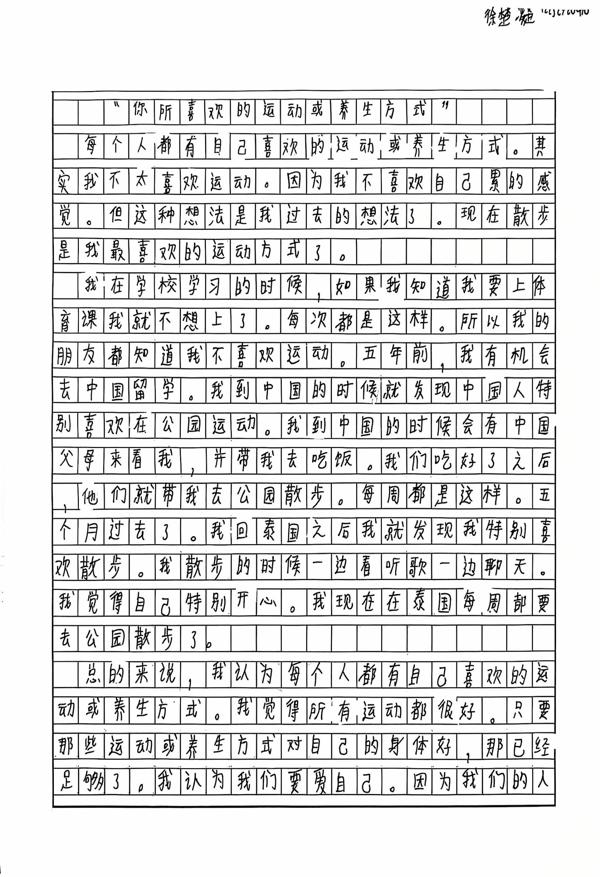 徐楚凝
"你所喜欢的运动或养生方式"
每个人都有自己喜欢的运动或养生方式。其
实我不太喜欢运动。因为我不喜欢自己累的感
觉。但这种想法是我过去的想法了。现在散步
是我最喜欢的运动方式了。
我在学校学习的时候，如果我知道我要上体
育课我就不想上了。每次都是这样。所以我的
朋友都知道我不喜欢运动。五年前，我有机会
去中国留学。我到中国的时候就发现中国人特
别喜欢在公园运动。我到中国的时候会有中国
父母来看我，并带我去吃饭。我们吃好了之后
，他们就带我去公园散步。每周都是这样。五
个月过去了。我回泰国之后我就发现我特别喜
欢散步。我散步的时候一边看听歌一边聊天。
我觉得自己特别开心。我现在在泰国每周都要
去公园散步了。
总的来说，我认为每个人都有自己喜欢的运
动或养生方式。我觉得所有运动都很好。只要
那些运动或养生方式对自己的身体好，那已经
足够了。我认为我们要爱自己。因为我们的人